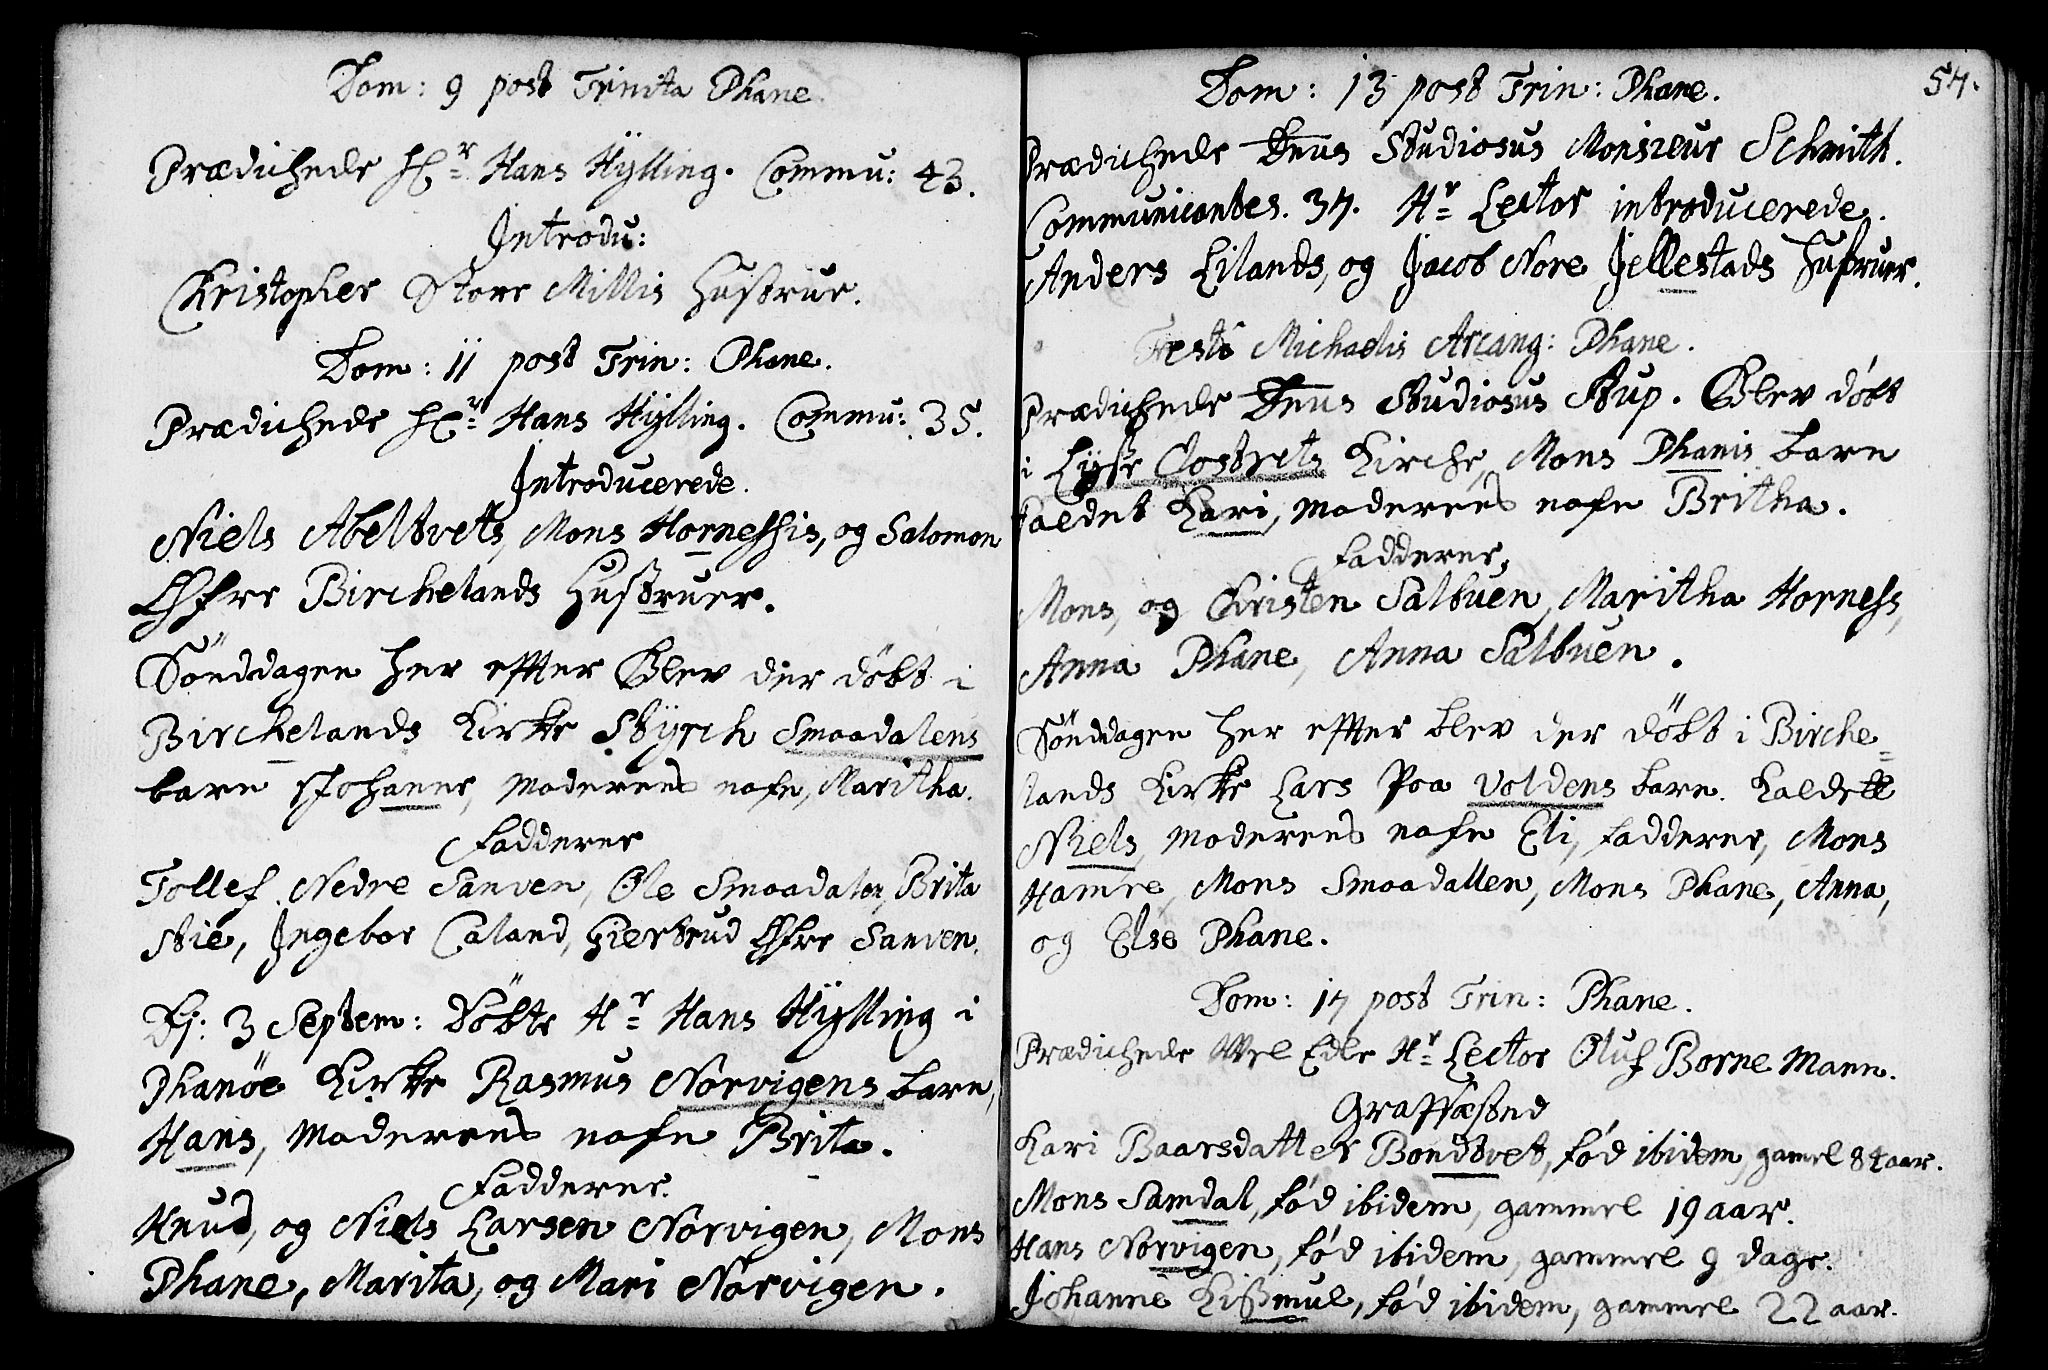 Dom: 9 post Trinita Phane.
Prædichede Hr: Hans Hÿlling. Commu: 43.
Introdu:
Christopher Store Millis Hustrue.
Dom: 11 post Trin: Phane.
Prædichede Hr: Hans Hÿlling. Commu: 35.
Introducerede.
Niels Abeltvets, Mons Hornessis, og Salomon
Øfre Birchelands Hustruer.
Sönddagen her effter Blev der döbt i
Birchelands Kirke Styrch Smaadalens
barn Johanne, Moderens nafn, Maritha.
Fadderne
Tollef Nedre Sanven, Ole Smaadalen, Brita
Stie, Ingebor Caland, Giertrud Øfre Sanven.
Dj: 3 Septem: Döbte Hr Hans Hÿlling i
Phanöe Kirke Rasmus Norvigens barn,
Hans, Moderens nafn Brita.
Fadderne.
Knud, og Niels Larsen Norvigen, Mons
Phane, Marita, og Mari Norvigen.
54.
Dom: 13 post Trin: Phane.
Prædichede Dnus Studiosus Monsieur Schmith.
Communicantes. 34. Hr Lector introducerede.
Anders Lilands, og Jacob Nore Jellestads Hustruer.
Festi Michaelis Arcang: Phane.
Prædichede Dnus Studiosus Stup. Blev döbt
i Lyse Clostrets Kirche, Mons Phanis barn
kaldet Kari, moderens nafn Britha.
Fadderne,
Mons, og Christen Sälbuen, Maritha Horness,
Anna Phane, Anna Sälbuen.
Sönddagen her effter blev der döbt i Birche=
lands Kirke Lars Poa Voldens barn. Kaldett
Niels, Moderens nafn Eli, fadderne, Mons
Hamre, Mons Smaadallen, Mons Phane, Anna,
og Else Phane.
Dom: 17 post Trin: Phane.
Prædichede Wel Edle Hr Lector Oluf Borne Mann.
Graffæsted
Kari Baarsdatter Bondtvet, föd ibidem, gamel 84 aar.
Mons Samdal, föd ibidem, gammel 19 aar.
Hans Norvigen, föd ibidem, gammel 9 dage.
Johanne Kismul, föd ibidem, gammel 22 aar.